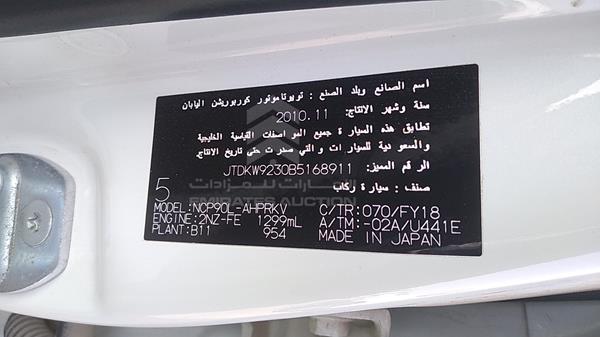 اسم الصانع وبلد الصنع : تويوتا موتور كوربوريشن اليابان
سنة وشهر الانتاج: 2010.11
تطابق هذه السيارة جميع المواصفات القياسية الخليجية
والسعودية للسيارات والتي صدرت حتى تاريخ الإنتاج
الرقم المميز: JTDKW9230B5168911
صنف : سيارة ركاب
5
الإمارات للمزادات
EMIRATES AUCTION
MODEL: NCP90L-AHPRKV C/TR: 070/FY18
ENGINE: 2NZ-FE 1299mL A/TM: -02A/U441E
PLANT: B11 954 MADE IN JAPAN